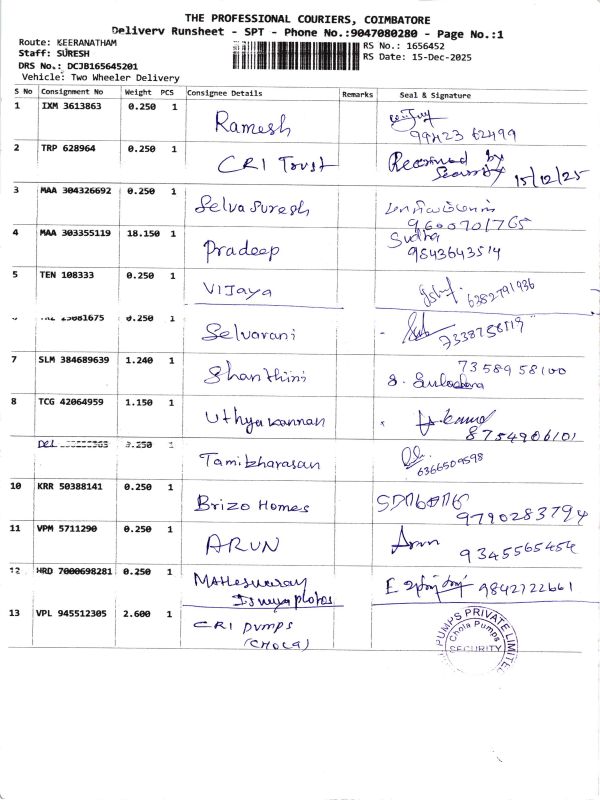 THE PROFESSIONAL COURIERS, COIMBATORE
Delivery Runsheet - SPT - Phone No.:9047080280 - Page No.:1
Route: KEERANATHAM
RS No.: 1656452
Staff: SURESH
RS Date: 15-Dec-2025
DRS No.: DCJB165645201
Vehicle: Two Wheeler Delivery
S No Consignment No Weight PCS Consignee Details Remarks Seal & Signature
1 IXM 3613863 0.250 1 Ramesh
99423 62499
2 TRP 628964 0.250 1 CRI Trust Received by
Security 15/12/25
3 MAA 304326692 0.250 1 Selva suresh
9600701765
4 MAA 303355119 18.150 1 Pradeep Sudha
9843643514
5 TEN 108333 0.250 1 Vijaya
6382791936
25081675 0.250 1 Selvarani
7338758119
7 SLM 384689639 1.240 1 Shanthini 73589 58100
S. Sulochana
8 TCG 42064959 1.150 1 Uthya kannan
8754906101
1 Tamizharasan
6366509598
10 KRR 50388141 0.250 1 Brizo Homes
9790283794
11 VPM 5711290 0.250 1 ARUN Arun
9345565454
12 HRD 7000698281 0.250 1 Maheswaran 9842122661
13 VPL 945512305 2.600 1 CRI Pumps
(CHOLA)
PUMPS PRIVATE LIMITED
Chola Pumps
SECURITY